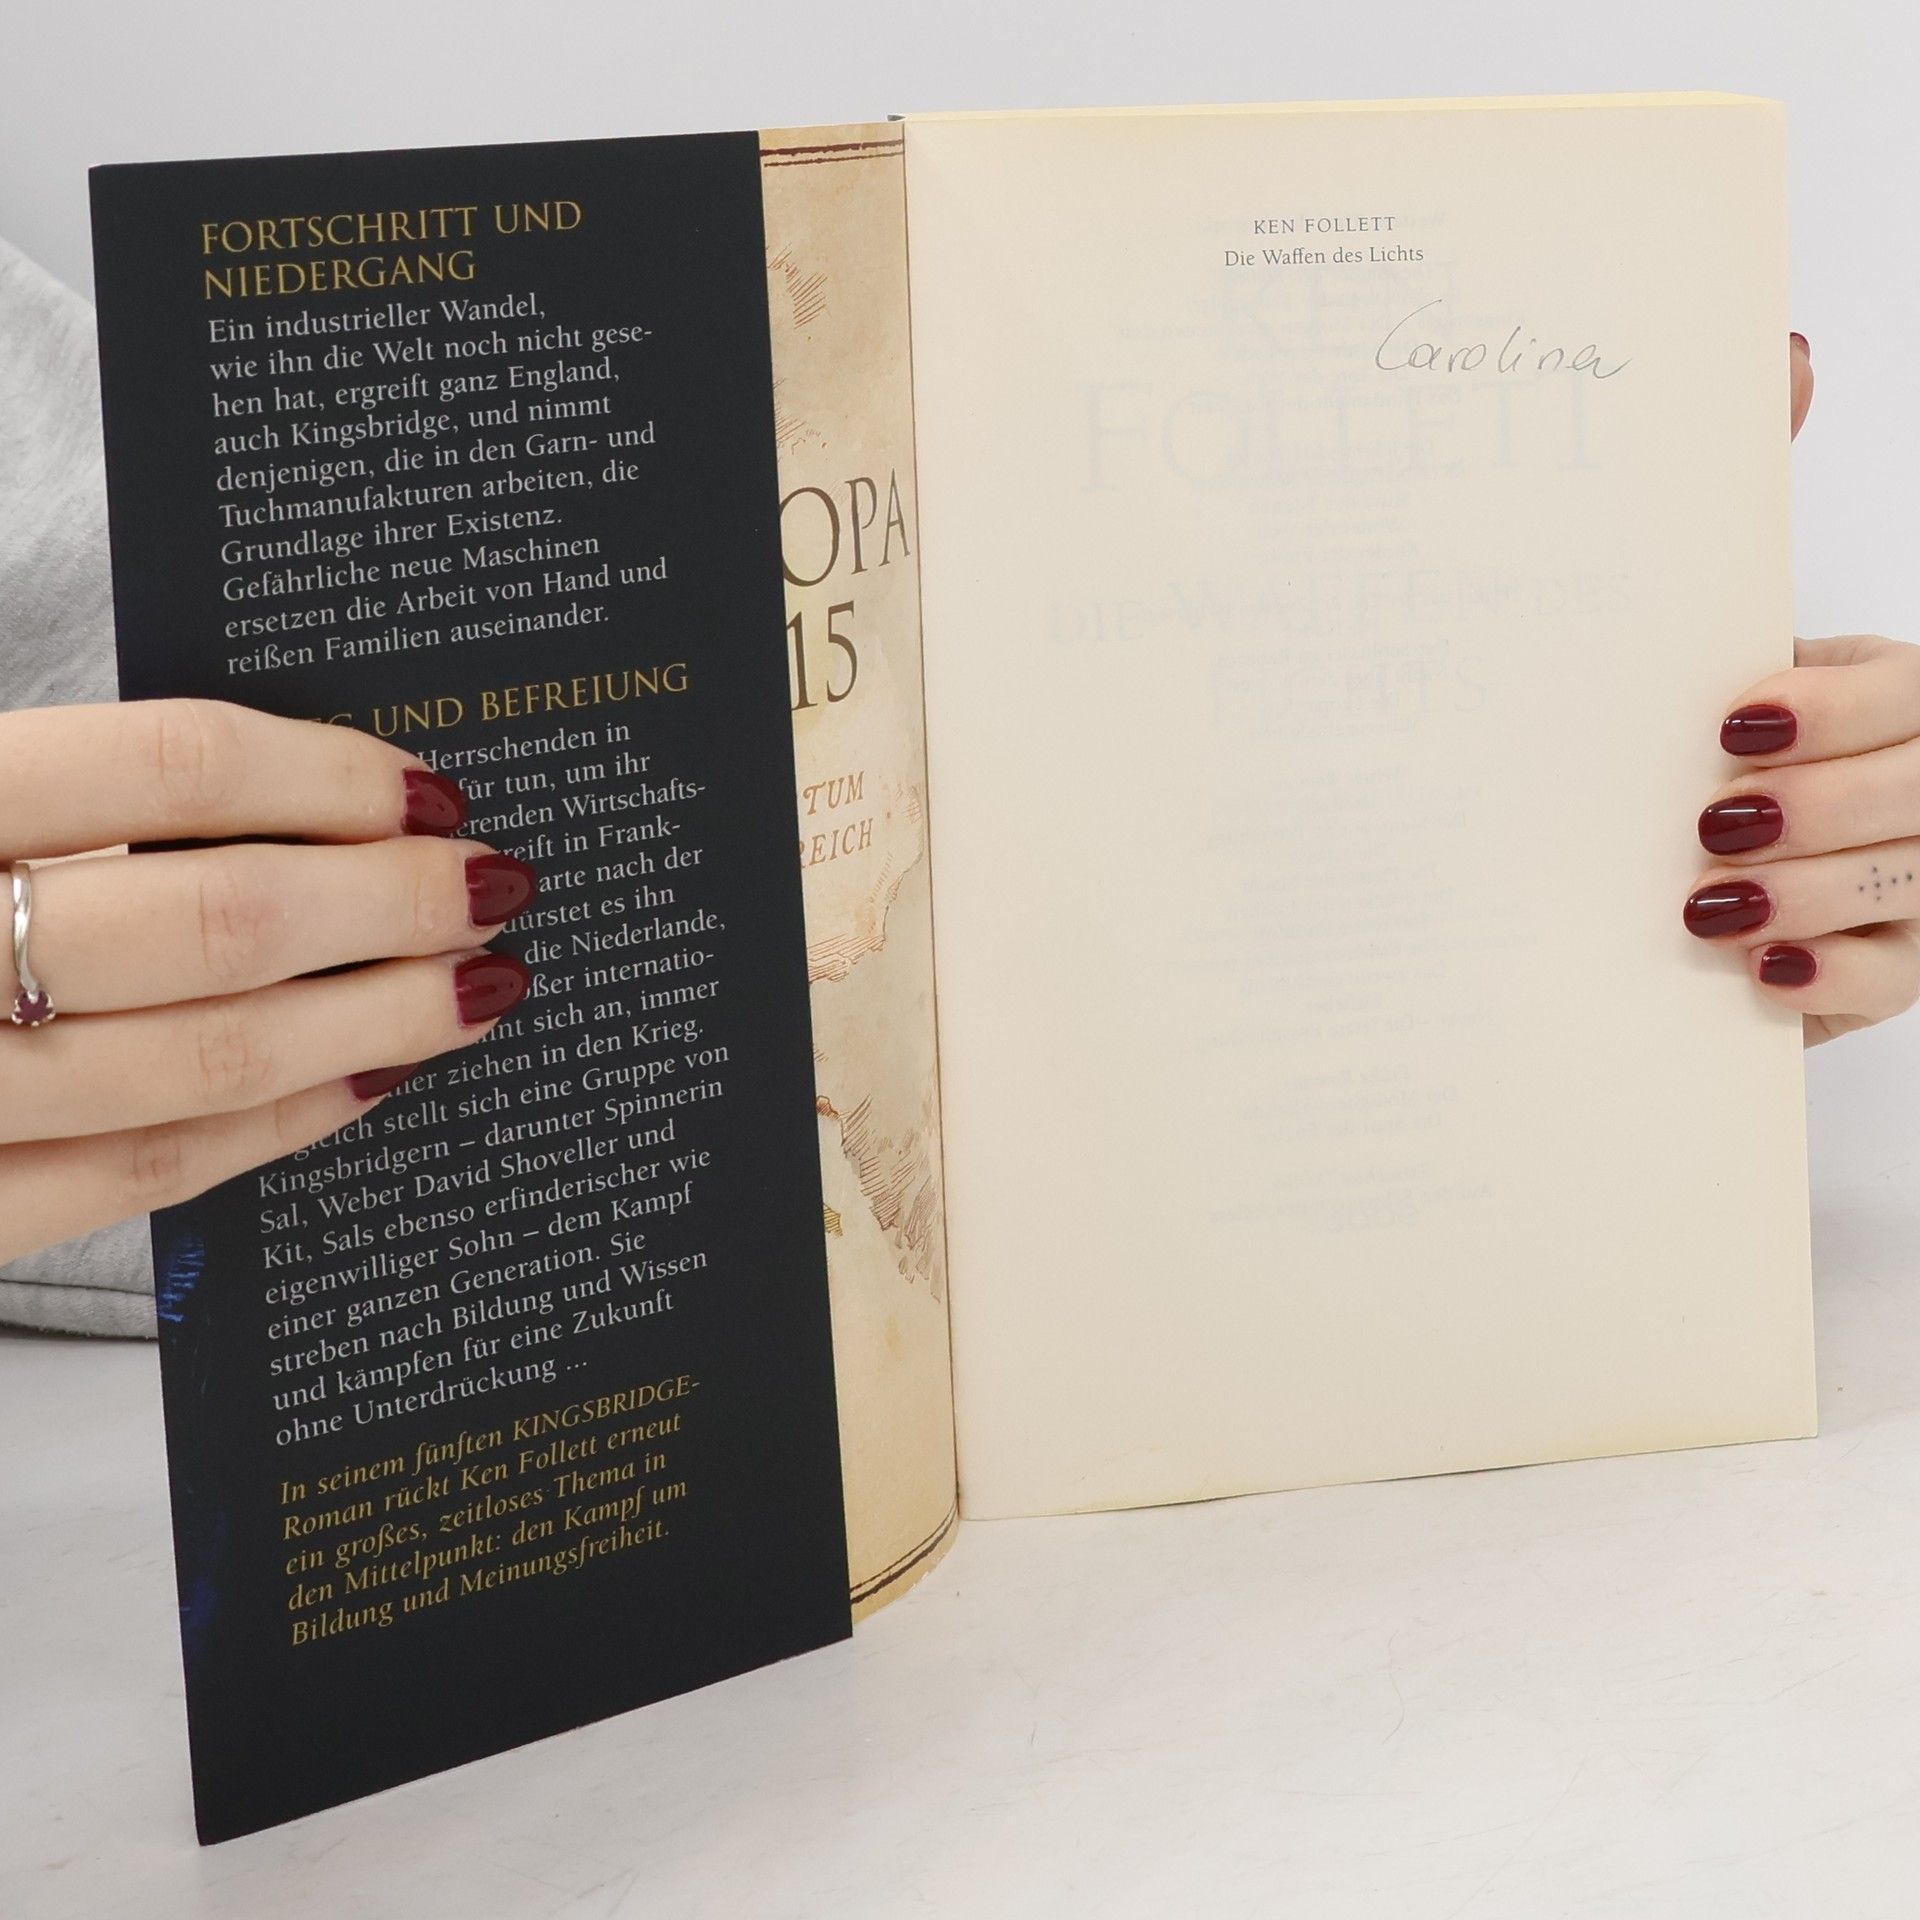 FORTSCHRITT UND
NIEDERGANG
Ein industrieller Wandel,
wie ihn die Welt noch nicht gese-
hen hat, ergreift ganz England,
auch Kingsbridge, und nimmt
denjenigen, die in den Garn- und
Tuchmanufakturen arbeiten, die
Grundlage ihrer Existenz.
Gefährliche neue Maschinen
ersetzen die Arbeit von Hand und
reißen Familien auseinander.
UND BEFREIUNG
Herrschenden in
für tun, um ihr
Wirtschafts-
in Frank-
nach der
es ihn
die Niederlande,
internatio-
sich an, immer
ziehen in den Krieg.
stellt sich eine Gruppe von
Kingsbridgern – darunter Spinnerin
Sal, Weber David Shoveller und
Kit, Sals ebenso erfinderischer wie
eigenwilliger Sohn – dem Kampf
einer ganzen Generation. Sie
streben nach Bildung und Wissen
und kämpfen für eine Zukunft
ohne Unterdrückung ...
In seinem fünften KINGSBRIDGE-
Roman rückt Ken Follett erneut
ein großes, zeitloses Thema in
den Mittelpunkt: den Kampf um
Bildung und Meinungsfreiheit.
OPA
15
TUM
REICH
KEN FOLLETT
Die Waffen des Lichts
Carolina